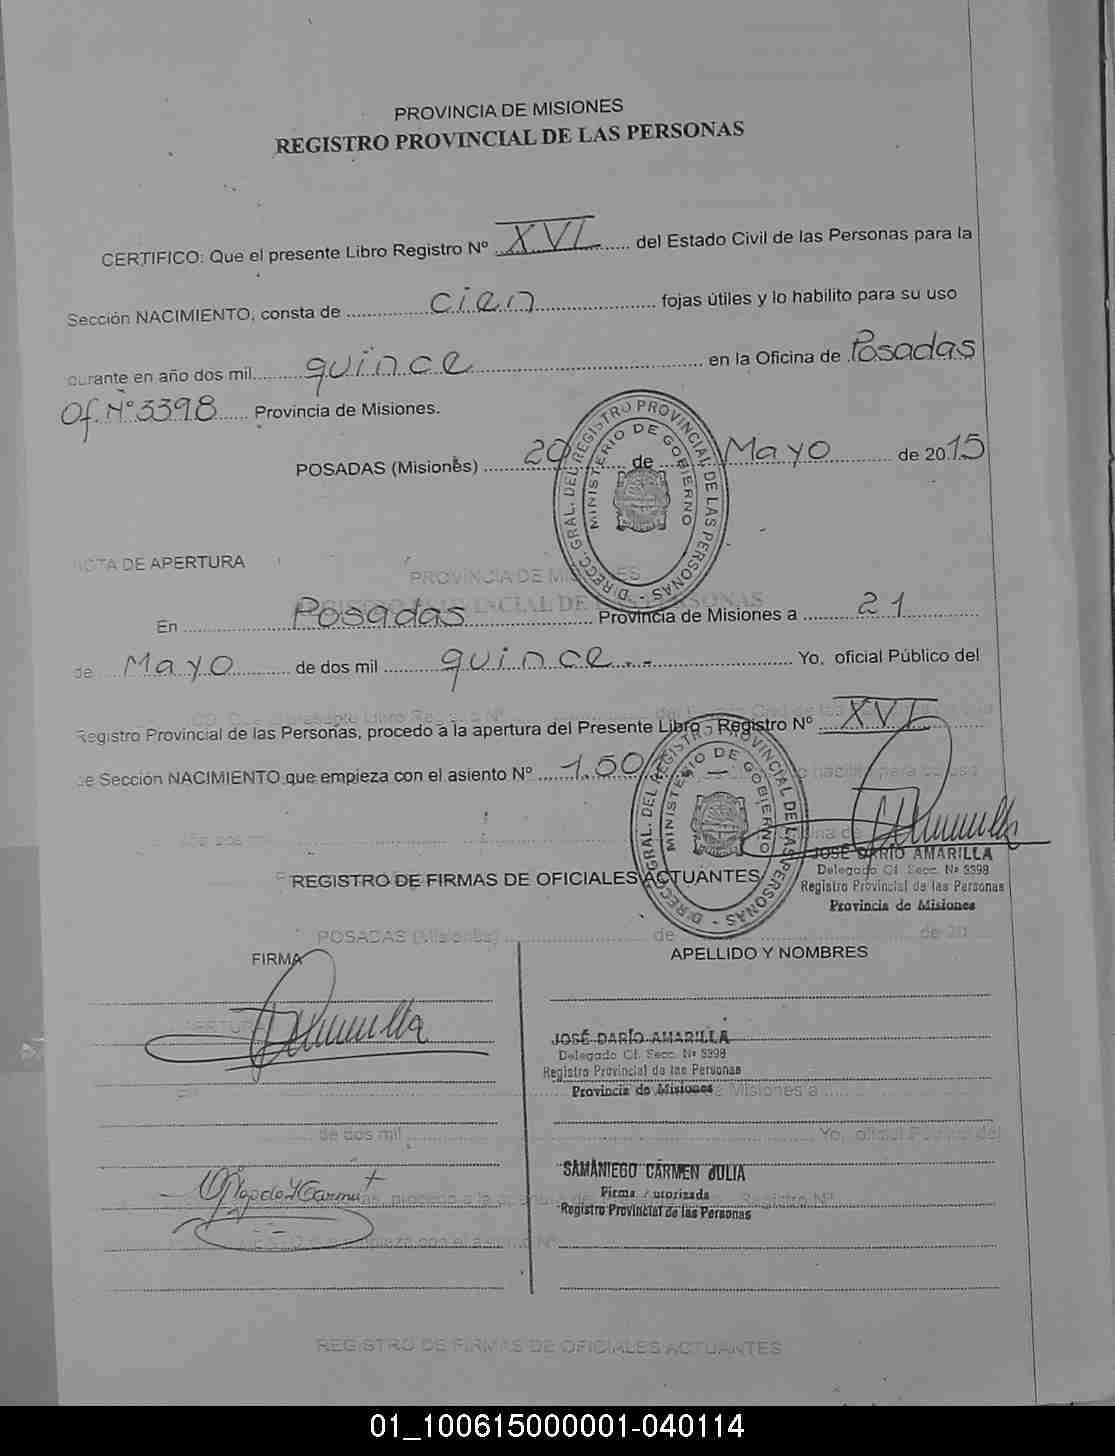 PROVINCIA DE MISIONES
REGISTRO PROVINCIAL DE LAS PERSONAS
CERTIFICO: Que el presente Libro Registro Nº XVI del Estado Civil de las Personas para la
Sección NACIMIENTO, consta de cien fojas útiles y lo habilito para su uso
durante en año dos mil quince en la Oficina de Posadas
Of. Nº 3398 Provincia de Misiones.
POSADAS (Misiones) 20 de Mayo de 2015
DIRECC. GRAL. DEL REGISTRO PROVINCIAL DE LAS PERSONAS
MINISTERIO DE GOBIERNO
ACTA DE APERTURA
En Posadas Provincia de Misiones a 21
de Mayo de dos mil quince.- Yo, oficial Público del
Registro Provincial de las Personas, procedo a la apertura del Presente Libro - Registro Nº XVI
de Sección NACIMIENTO que empieza con el asiento Nº 1.50
DIRECC. GRAL. DEL REGISTRO PROVINCIAL DE LAS PERSONAS
MINISTERIO DE GOBIERNO
JOSÉ DARÍO AMARILLA
Delegado Of. Secc. Nº 3398
Registro Provincial de las Personas
Provincia de Misiones
REGISTRO DE FIRMAS DE OFICIALES ACTUANTES
FIRMA
APELLIDO Y NOMBRES
JOSÉ DARÍO AMARILLA
Delegado Of. Secc. Nº 3398
Registro Provincial de las Personas
Provincia de Misiones
SAMANIEGO CARMEN JULIA
Firma Autorizada
Registro Provincial de las Personas
REGISTRO DE FIRMAS DE OFICIALES ACTUANTES
01_100615000001-040114